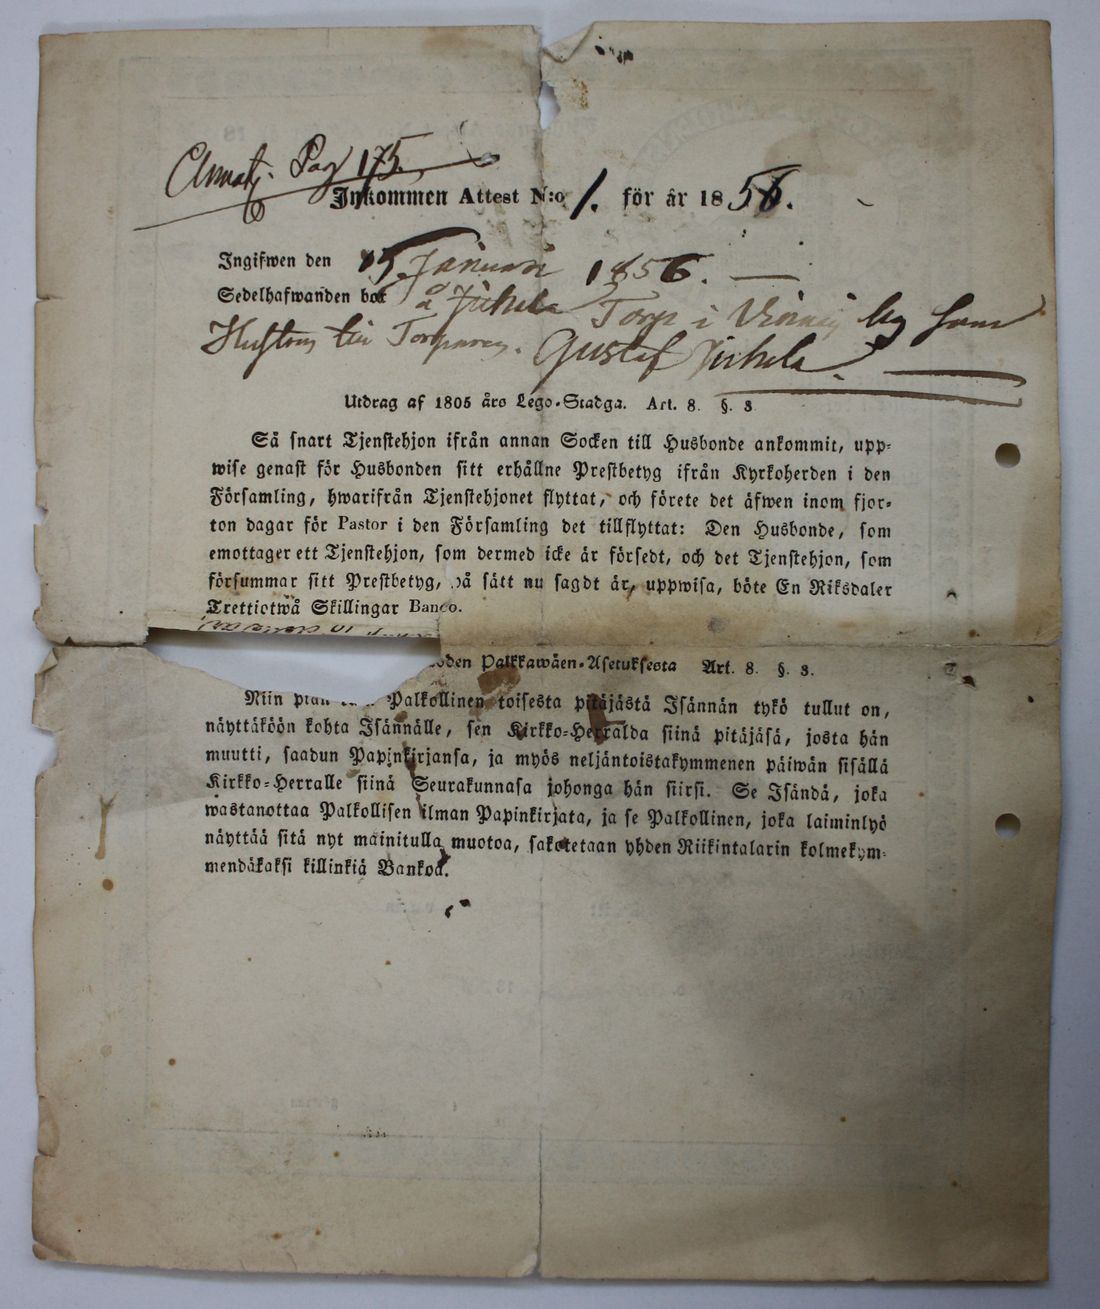 Pag 175.
Inkommen Attest N:o 1. för år 1856.
Ingifwen den 15 Januari 1856. —
Sedelhafwanden bor å Jickela Torp i by som
Hustru till Torparen. Gustaf Jickela. —
Utdrag af 1805 års Lego-Stadga. Art. 8. §. 3
Så snart Tjenstehjon ifrån annan Socken till Husbonde ankommit, upp-
wise genast för Husbonden sitt erhållne Prestbetyg ifrån Kyrkoherden i den
Församling, hwarifrån Tjenstehjonet flyttat, och förete det äfwen inom fjor-
ton dagar för Pastor i den Församling det tillflyttat: Den Husbonde, som
emottager ett Tjenstehjon, som dermed icke är försedt, och det Tjenstehjon, som
försummar sitt Prestbetyg, på sätt nu sagdt är, uppwisa, böte En Riksdaler
Trettiotwå Skillingar Banco.
Palkkawäen-Asetuksesta Art. 8. §. 3.
Niin pian Palkollinen toisesta pitäjästä Isännän tykö tullut on,
näyttäköön kohta Isännälle, sen Kirkko-Herralda siinä pitäjäsä, josta hän
muutti, saadun Papinkirjansa, ja myös neljäntoistakymmenen päiwän sisällä
Kirkko-Herralle siinä Seurakunnasa johonga hän siirsi. Se Isändä, joka
wastanottaa Palkollisen ilman Papinkirjata, ja se Palkollinen, joka laiminlyö
näyttää sitä nyt mainitulla muotoa, sakotetaan yhden Riikintalarin kolmekym-
mendäkaksi killinkiä Bankoa.